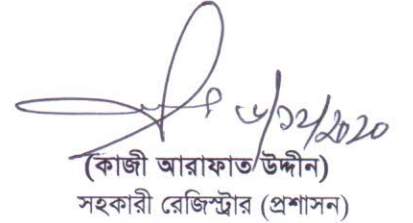 /১২/2020
(কাজী আরাফাত উদ্দীন)
সহকারী রেজিস্ট্রার (প্রশাসন)